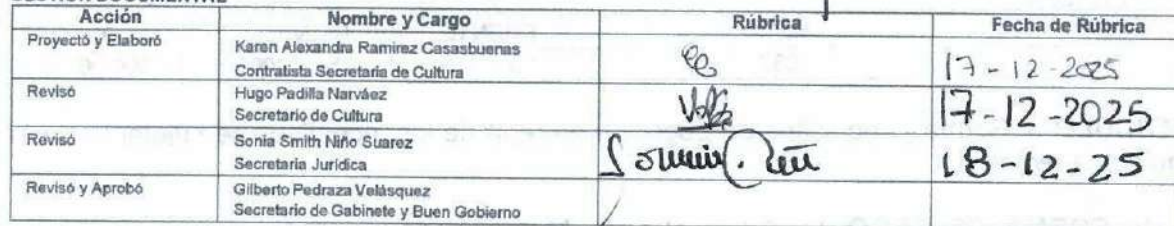 Acción Nombre y Cargo Rúbrica Fecha de Rúbrica
Proyectó y Elaboró Karen Alexandra Ramirez Casasbuenas
Contratista Secretaria de Cultura 17-12-2025
Revisó Hugo Padilla Narváez
Secretario de Cultura 17-12-2025
Revisó Sonia Smith Niño Suarez
Secretaria Jurídica 18-12-25
Revisó y Aprobó Gilberto Pedraza Velásquez
Secretario de Gabinete y Buen Gobierno